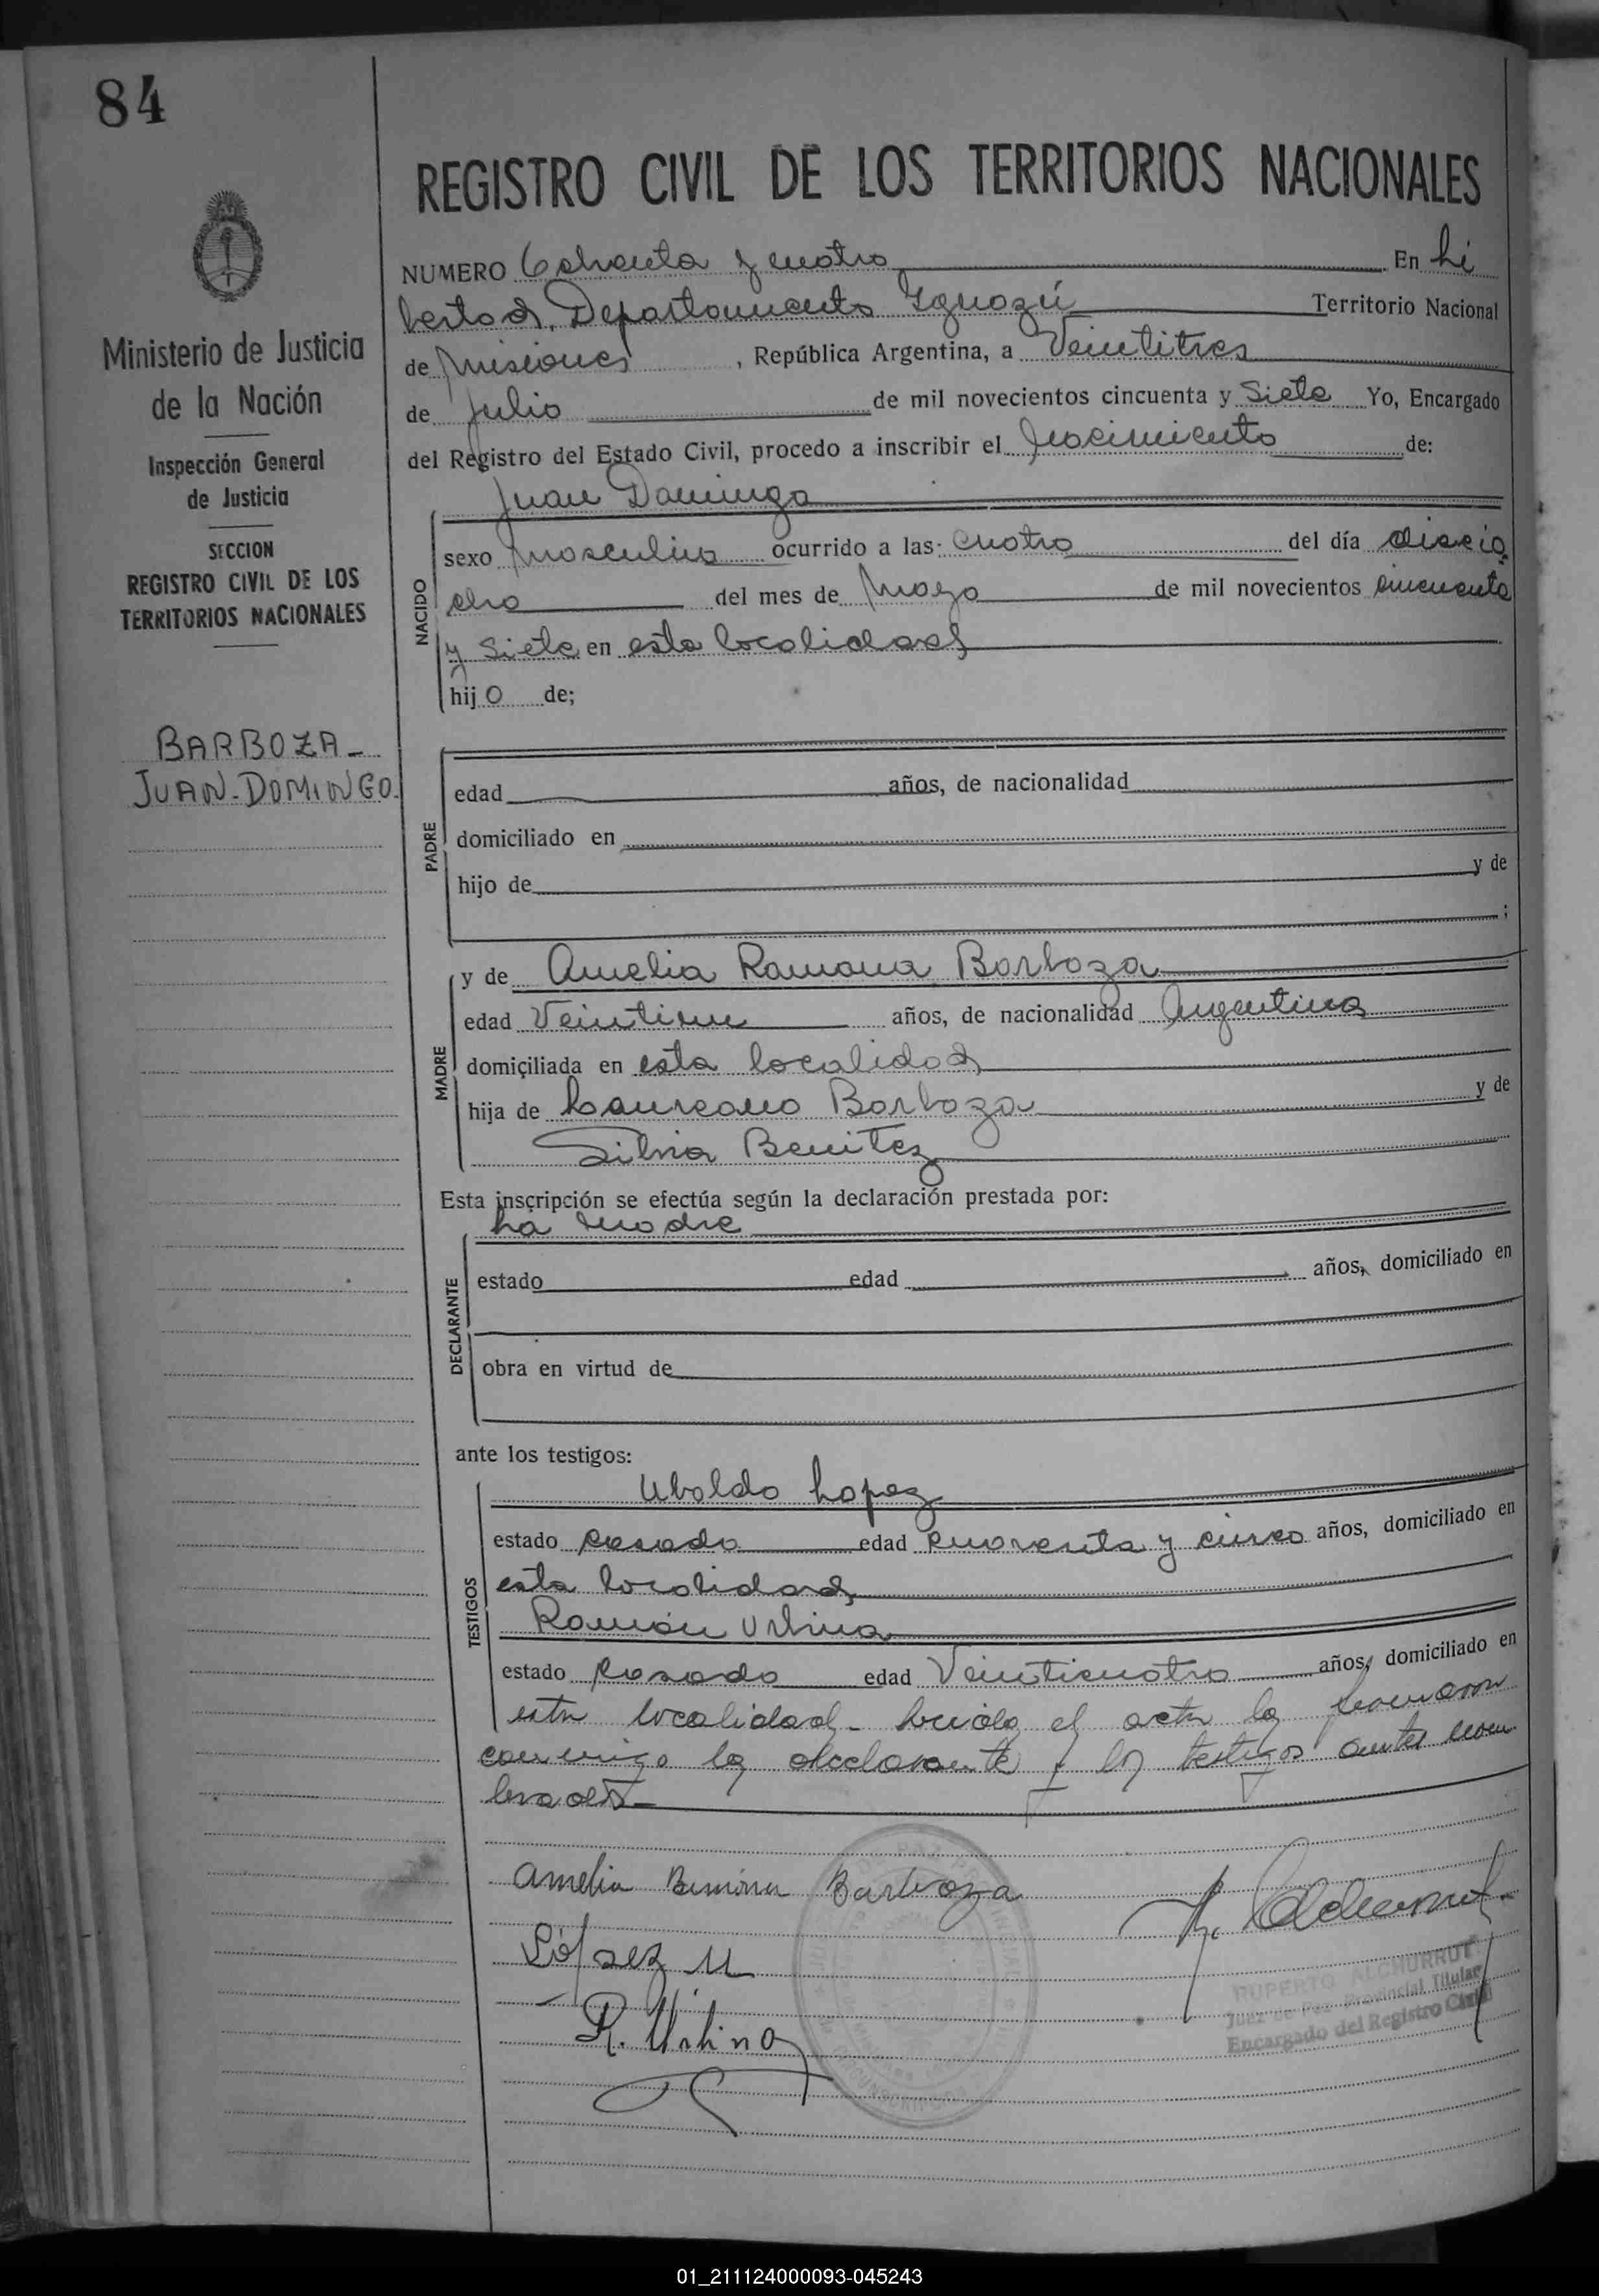 84
REGISTRO CIVIL DE LOS TERRITORIOS NACIONALES
NUMERO Ochenta y cuatro En Li
bertad, Departamento Iguazú Territorio Nacional
de Misiones, República Argentina, a Veintitres
de Julio de mil novecientos cincuenta y Siete Yo, Encargado
del Registro del Estado Civil, procedo a inscribir el Nacimiento de:
Ministerio de Justicia
de la Nación
Inspección General
de Justicia
SECCION
REGISTRO CIVIL DE LOS
TERRITORIOS NACIONALES
BARBOZA-
JUAN-DOMINGO.
NACIDO
Juan Domingo
sexo Masculino ocurrido a las cuatro del día diecio
cho del mes de Mayo de mil novecientos cincuenta
y Siete en esta localidad
hijo de;
PADRE
edad años, de nacionalidad
domiciliado en
hijo de y de
;
MADRE
y de Amelia Ramona Barboza
edad Veintiun años, de nacionalidad Argentina
domiciliada en esta localidad
hija de Laureano Barboza y de
Silvia Benitez
Esta inscripción se efectúa según la declaración prestada por:
La Madre
DECLARANTE
estado edad años, domiciliado en
obra en virtud de
ante los testigos:
TESTIGOS
Ubaldo Lopez
estado casado edad cuarenta y cinco años, domiciliado en
esta localidad
Ramón Urbina
estado casado edad Veinticuatro años, domiciliado en
esta localidad- Leida el acta la firmaron
conmigo la declarante y los testigos antes nom
brados-
Amelia Ramona Barboza
López U
R. Urbina
RUPERTO ALCHURRUT
Juez de Paz Provincial Titular
Encargado del Registro Civil
01_211124000093-045243